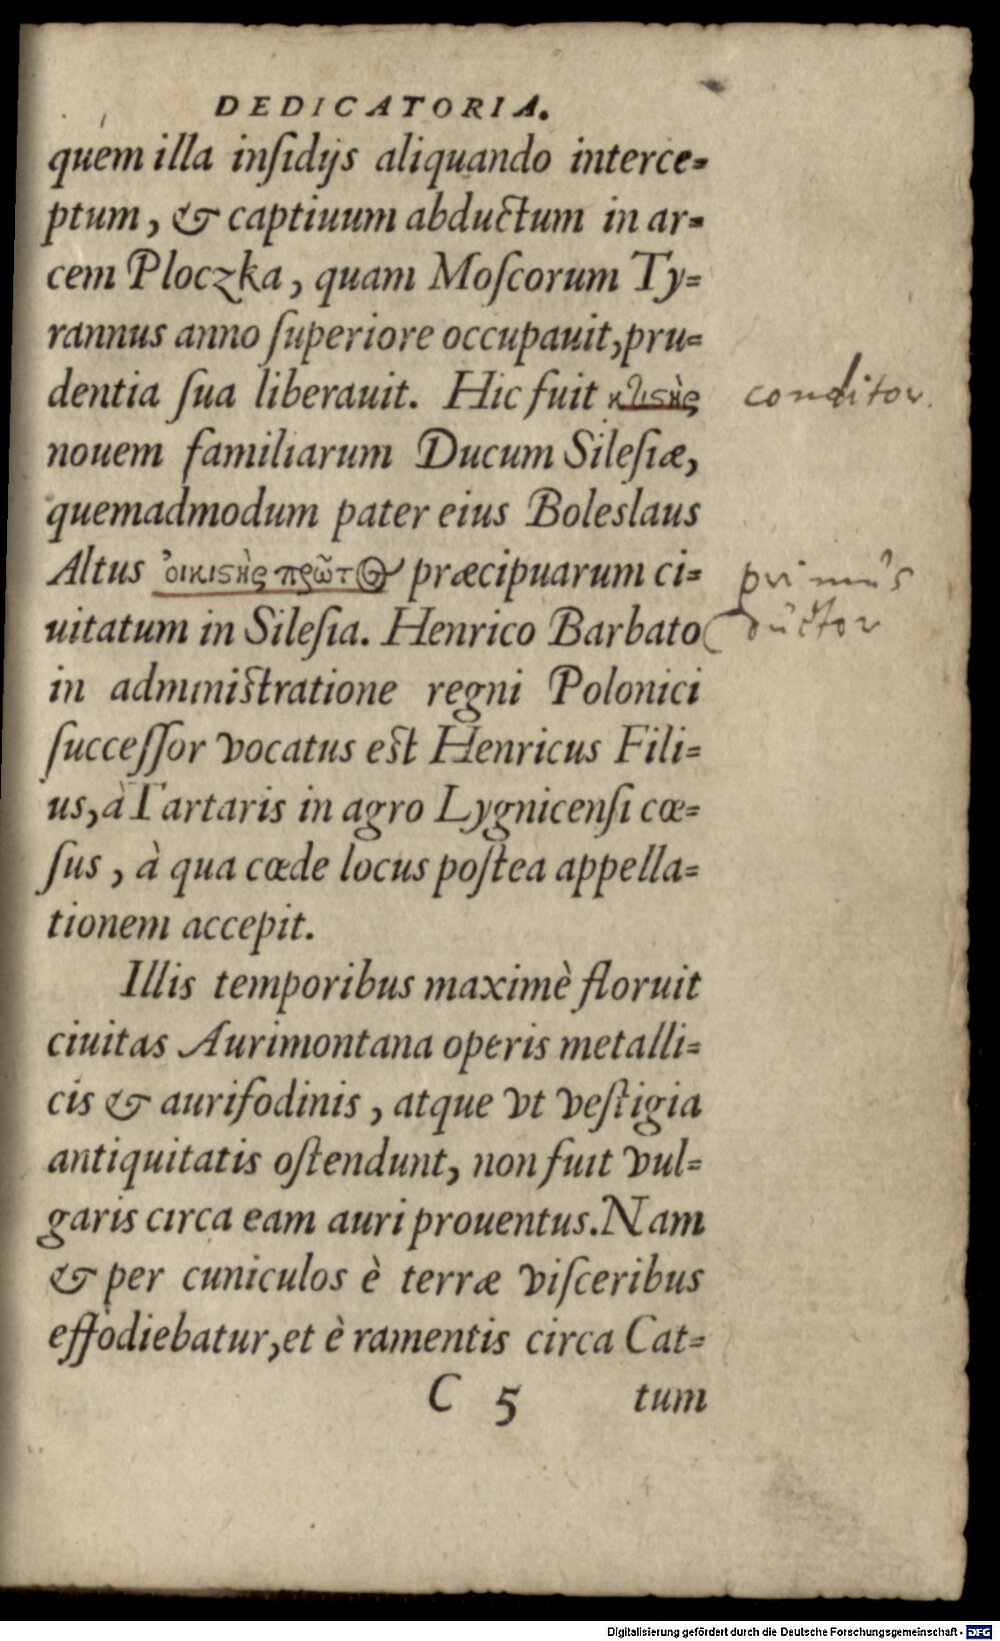 DEDICATORIA.
quem illa inſidijs aliquando interce=
ptum, & captiuum abductum in ar=
cem Ploczka, quam Moſcorum Ty=
rannus anno ſuperiore occupauit, pru=
dentia ſua liberauit. Hic fuit κτιϛὴς conditor.
nouem familiarum Ducum Sileſiæ,
quemadmodum pater eius Boleslaus
Altus ὀικιϛὴς πρῶτος præcipuarum ci= primus
uitatum in Sileſia. Henrico Barbato
in adminiſtratione regni Polonici
ſucceſſor vocatus eſt Henricus Fili=
us, à Tartaris in agro Lygnicenſi cæ=
ſus, à qua cæde locus poſtea appella=
tionem accepit.
Illis temporibus maximè floruit
ciuitas Aurimontana operis metalli=
cis & aurifodinis, atque vt veſtigia
antiquitatis oſtendunt, non fuit vul=
garis circa eam auri prouentus. Nam
& per cuniculos è terræ viſceribus
effodiebatur, et è ramentis circa Cat=
C 5 tum
Digitalisierung gefördert durch die Deutsche Forschungsgemeinschaft - DFG